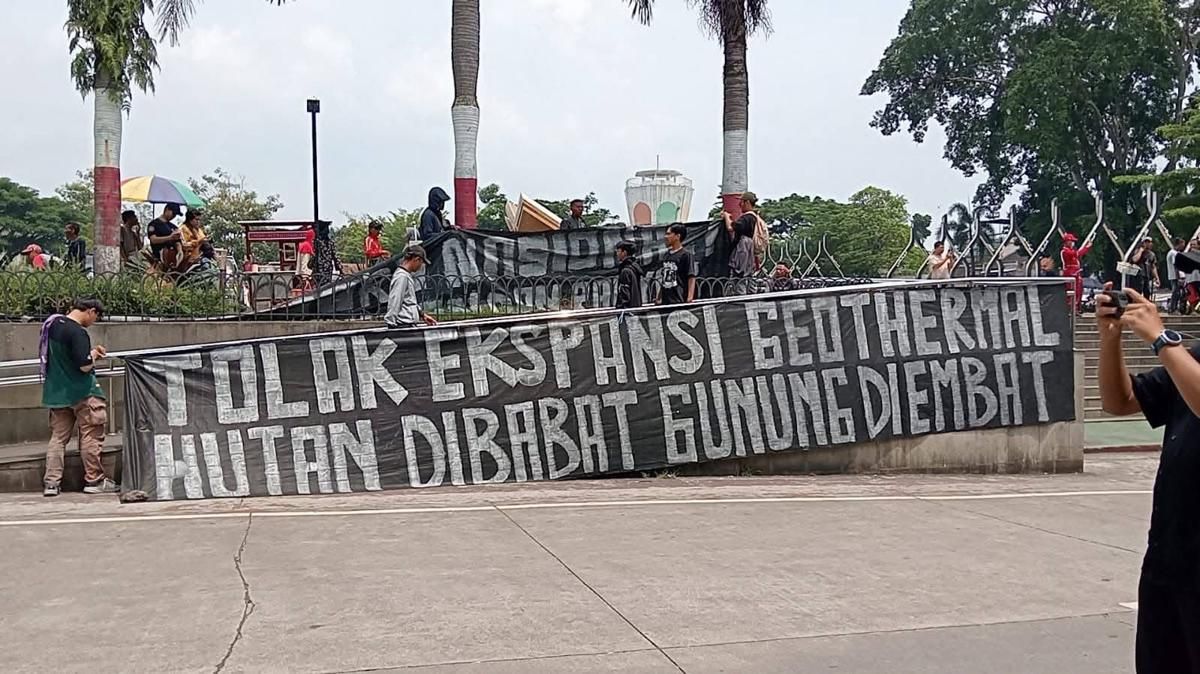 TOLAK EKSPANSI GEOTHERMAL
HUTAN DIBABAT GUNUNG DIEMBAT